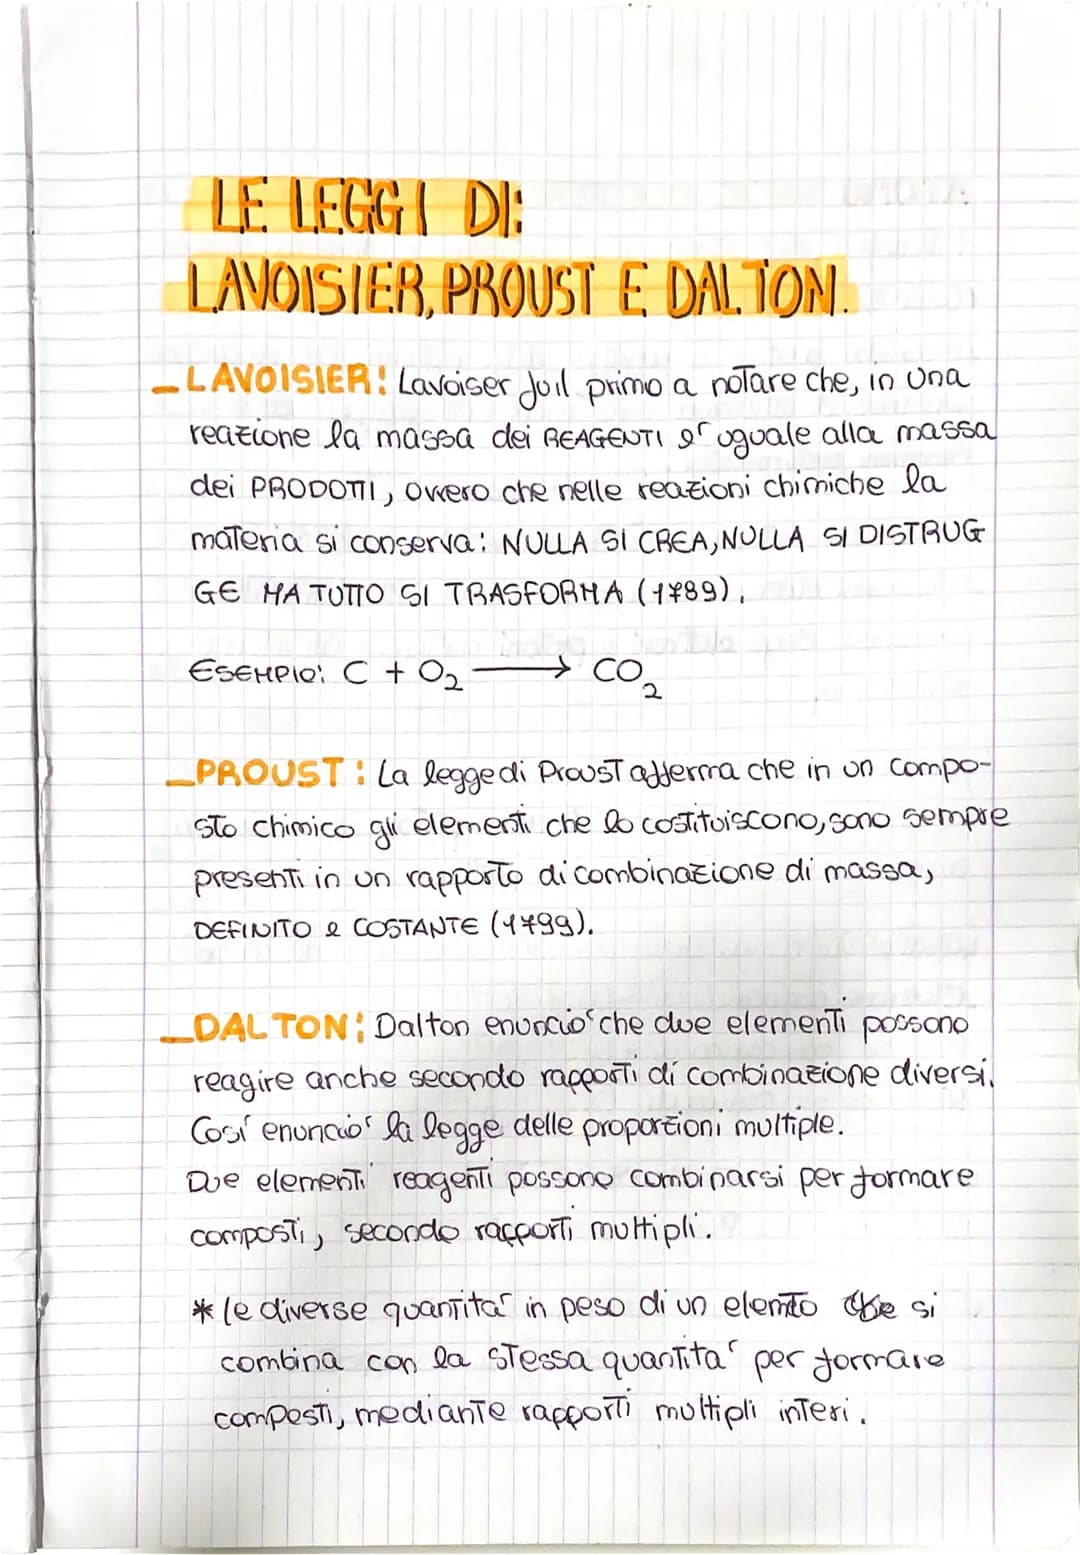 LE LEGGI DI:
LAVOISIER, PROUST E DALTON.
_LAVOISIER: Lavoiser fu il primo a notare che, in una
reazione la massa dei REAGENTI è uguale alla massa
dei PRODOTTI, ovvero che nelle reazioni chimiche la
materia si conserva: NULLA SI CREA, NULLA SI DISTRUG
GE MA TUTTO SI TRASFORMA (1789).
ESEMPIO: C + O₂ → CO₂
_PROUST: La legge di Proust afferma che in un compo-
sto chimico gli elementi che lo costituiscono, sono sempre
presenti in un rapporto di combinazione di massa,
DEFINITO e COSTANTE (1799).
_DALTON: Dalton enunciò che due elementi possono
reagire anche secondo rapporti di combinazione diversi.
Così enunciò la legge delle proporzioni multiple.
Due elementi reagenti possono combinarsi per formare
composti, secondo rapporti multipli.
* le diverse quantità in peso di un elemto che si
combina con la stessa quantità per formare
composti, mediante rapporti multipli interi.